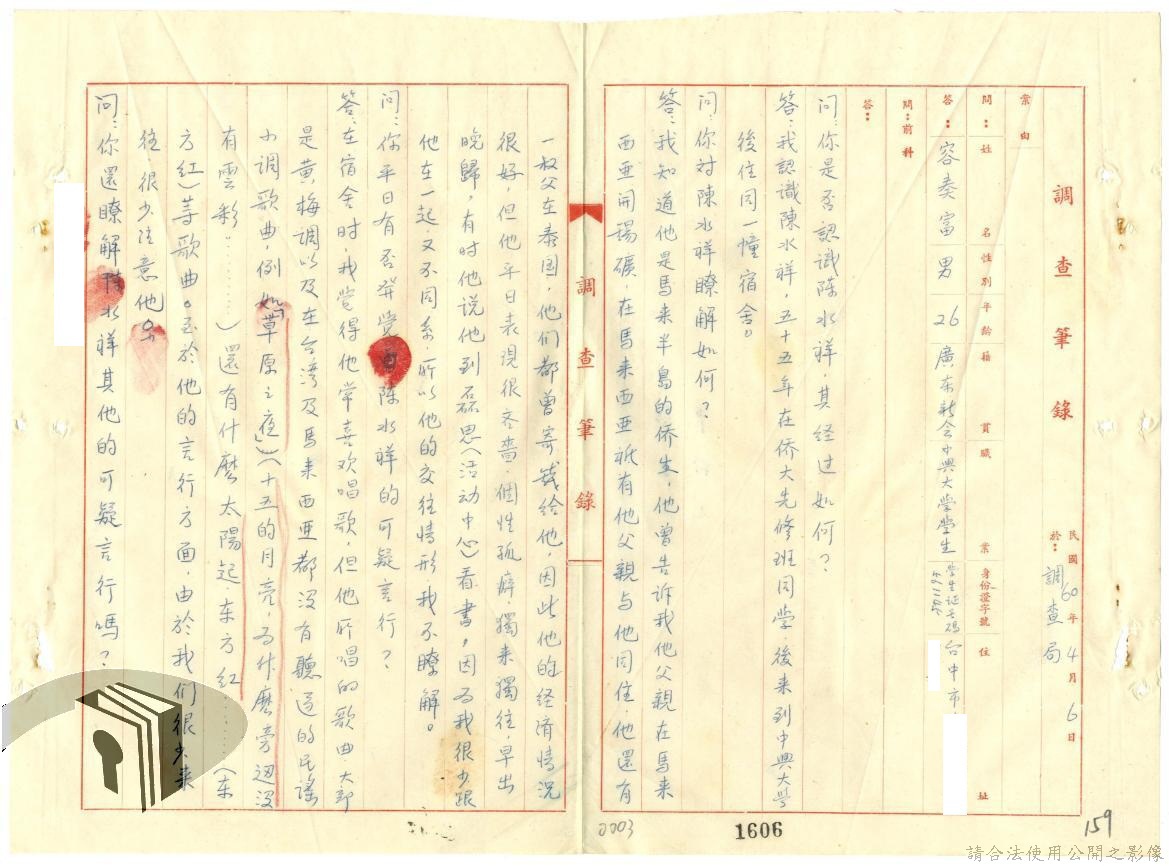 調查筆錄
民國60年4月6日
於：調查局
案由
問：姓名性別年齡籍貫職業身份證字號住址
答：容奏富 男 26 廣东新会中興大學學生 学生证号碼 台中市
問：前科
答：
问：你是否認識陈水祥其经过如何？
答：我認識陳水祥，五十五年在侨大先修班同學，後来到中興大学
後住同一幢宿舍。
问：你对陳水祥瞭解如何？
答：我知道他是馬来半島的侨生，他曾告诉我他父親在馬来
西亜開錫礦，在馬来西亜衹有他父親与他同住，他還有
調查筆錄
一叔父在泰国，他们都曾寄錢给他，因此他的经済情況
很好，但他平日表現很吝嗇，個性孤癖，獨来獨往，早出
晚歸，有时他说他到磊思（活动中心）看書，因为我很少跟
他在一起，又不同系，所以他的交往情形，我不瞭解。
问：你平日有否发覚陈水祥的可疑言行？
答：在宿舍时，我覺得他常喜欢唱歌，但他所唱的歌曲，大部
是黄梅調以及在台湾及馬来西亜都没有聽過的民謠
小調歌曲，例如「草原之夜」（十五的月亮，为什麽旁边沒
有雲彩…………）還有什麽太陽起，东方紅…………（东
方紅）等歌曲。至於他的言行方面，由於我们很少来
往很少注意他。
问：你還瞭解陳水祥其他的可疑言行嗎？
0003
1606
159
請合法使用公開之影像